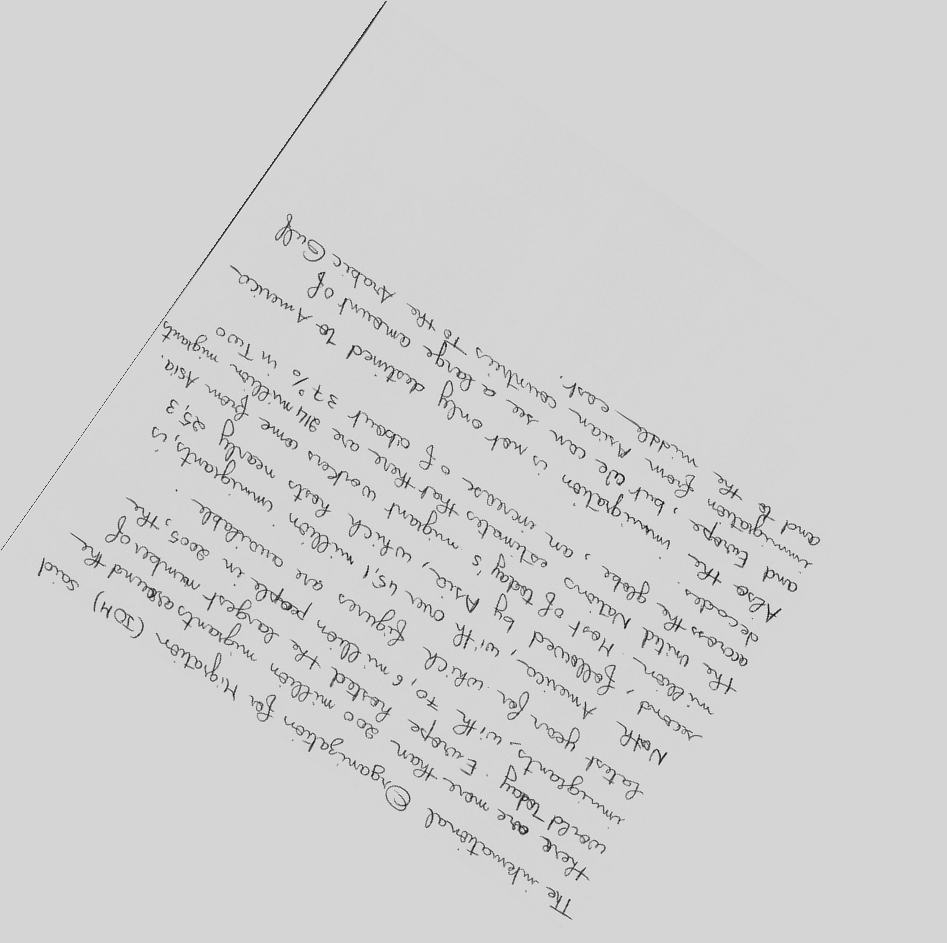 The international Organization for Migration (IOM) said
there are more than 200 million migrants around the
world Today. Europe hosted the largest number of
immigrants - with 70,6 million people in 2005, the
latest year for which figures are available.
North America, with over 45,1 million immigrants, is
second, followed by Asia, which hosts nearly 25,3
million. Most of today's migrant workers come from Asia.
the United Nations estimates that there are 214 million migrants
across the globe, an increase of about 37% in Two
decades.
Also the immigration is not only destined to America
and Europe, but we can see a large amount of
immigration from Asian countries To the Arabic Gulf
and to the middle east.